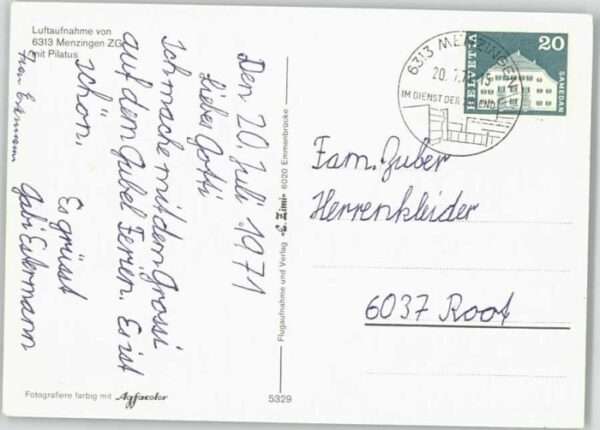 Luftaufnahme von
6313 Menzingen ZG
mit Pilatus
Den 20. Juli 1971
Liebe Gotti
Ich mache mit dem Grossi
auf dem Gubel Ferien. Es ist
schön.
Es grüsst
Gabi Estermann
Frau Estermann
Flugaufnahme und Verlag «E. Zimi» 6020 Emmenbrücke
6313 MENZINGEN
20.7.71-15
IM DIENST DER JUGEND
HELVETIA
20
SAMEDAN
Fam. Huber
Herrenkleider
6037 Root
Fotografiere farbig mit Agfacolor
5329